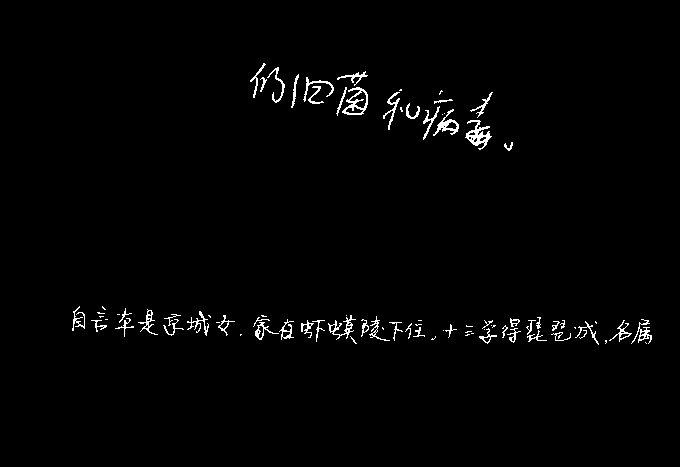 仍旧菌和病毒。
自言本是京城女.家在虾蟆陵下住,十三学得琵琶成,名属